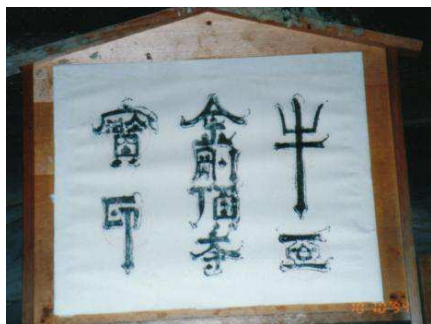 牛王
金剛頂寺
寶印